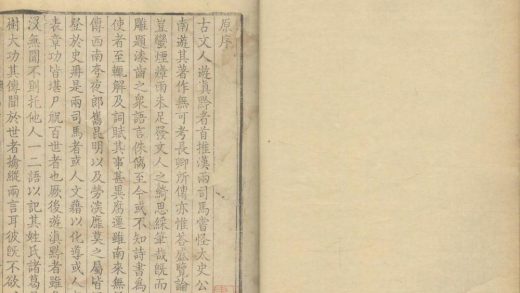 原序
古文人遊滇黔者首推漢兩司馬嘗怪太史公
南遊其著作無可考長卿所傳亦惟荅盛覽論
豈蠻煙瘴雨未足發文人之綺思綵筆哉旣而
雕題漆齒之衆語言侏至今或不知詩書為
使者至輒解及詞賦其事甚異馬遷雖南來無
傳西南夸夜郎舊昆明以及勞漢靡莫之屬皆
登於史冊是兩司馬者或人文藉以化導或人
表章功皆堪尸祝百世者也厥後遊滇黔者雖
沒無聞不到托他人一二語以記其姓氏諸葛
樹大功其傳聞於世者擒縱兩言耳彼旣不欲